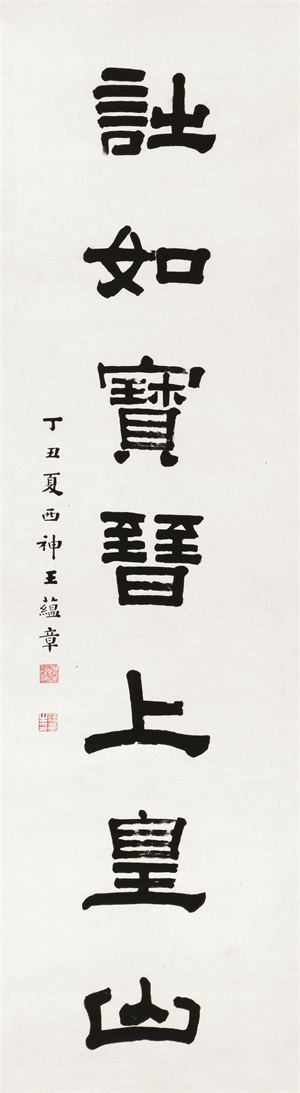 詘如寶晉上皇山
丁丑夏西神王蘊章